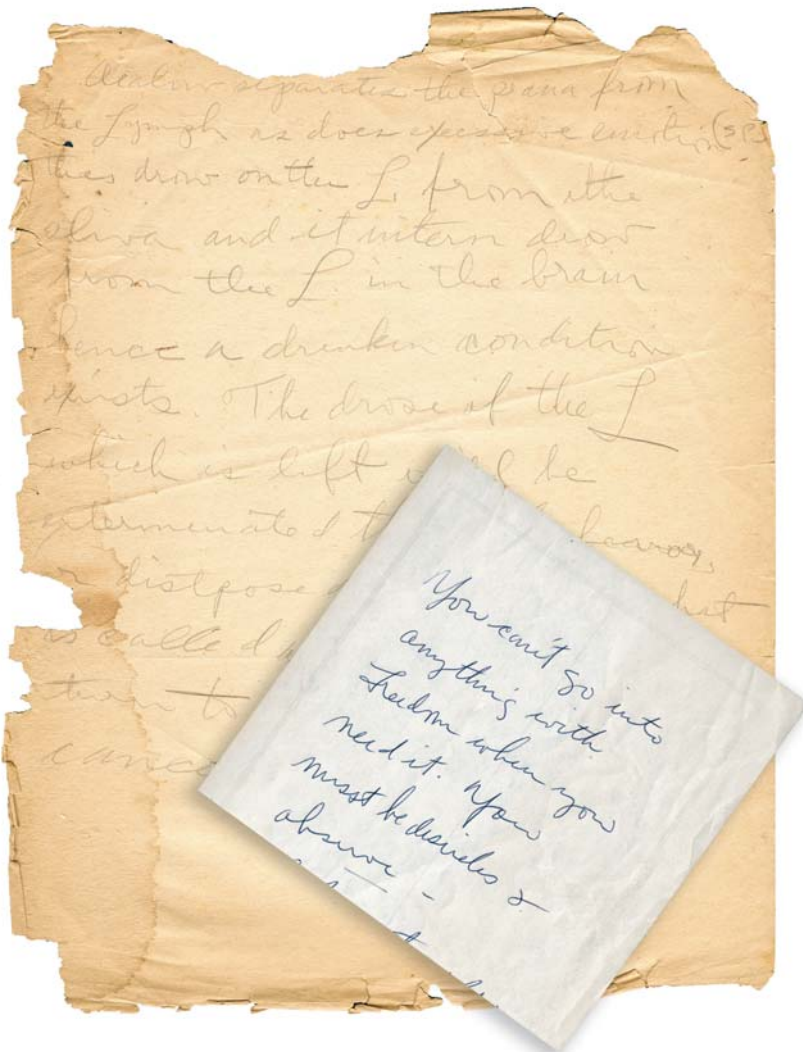 separates the prana from
the Lymph as does excessive emotion (SP.)
drow on the L. from the
sliva and it intern drow
from the L. in the brain
hence a drunken condition
exists. The drose of the L
which is left be
or distpose hat
is called
turn to
cance
You can't go into
anything with
freedom when you
need it. You
must be desireles &
observe -